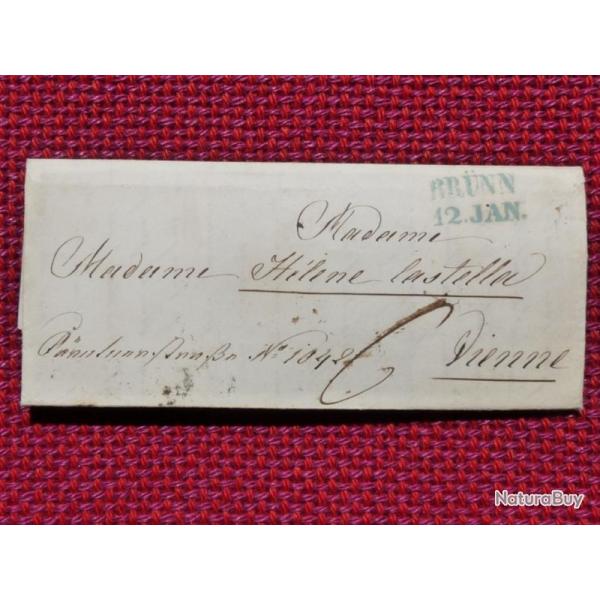 BRÜNN
12. JAN.
Madame
Madame Hélène Castella
Kärntnerstraße No 1042
Vienne
NaturaBuy